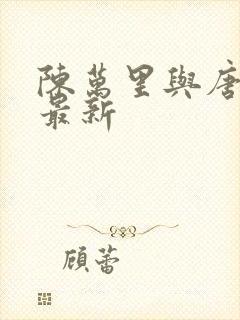 陳萬里與唐
最新
顾蕾